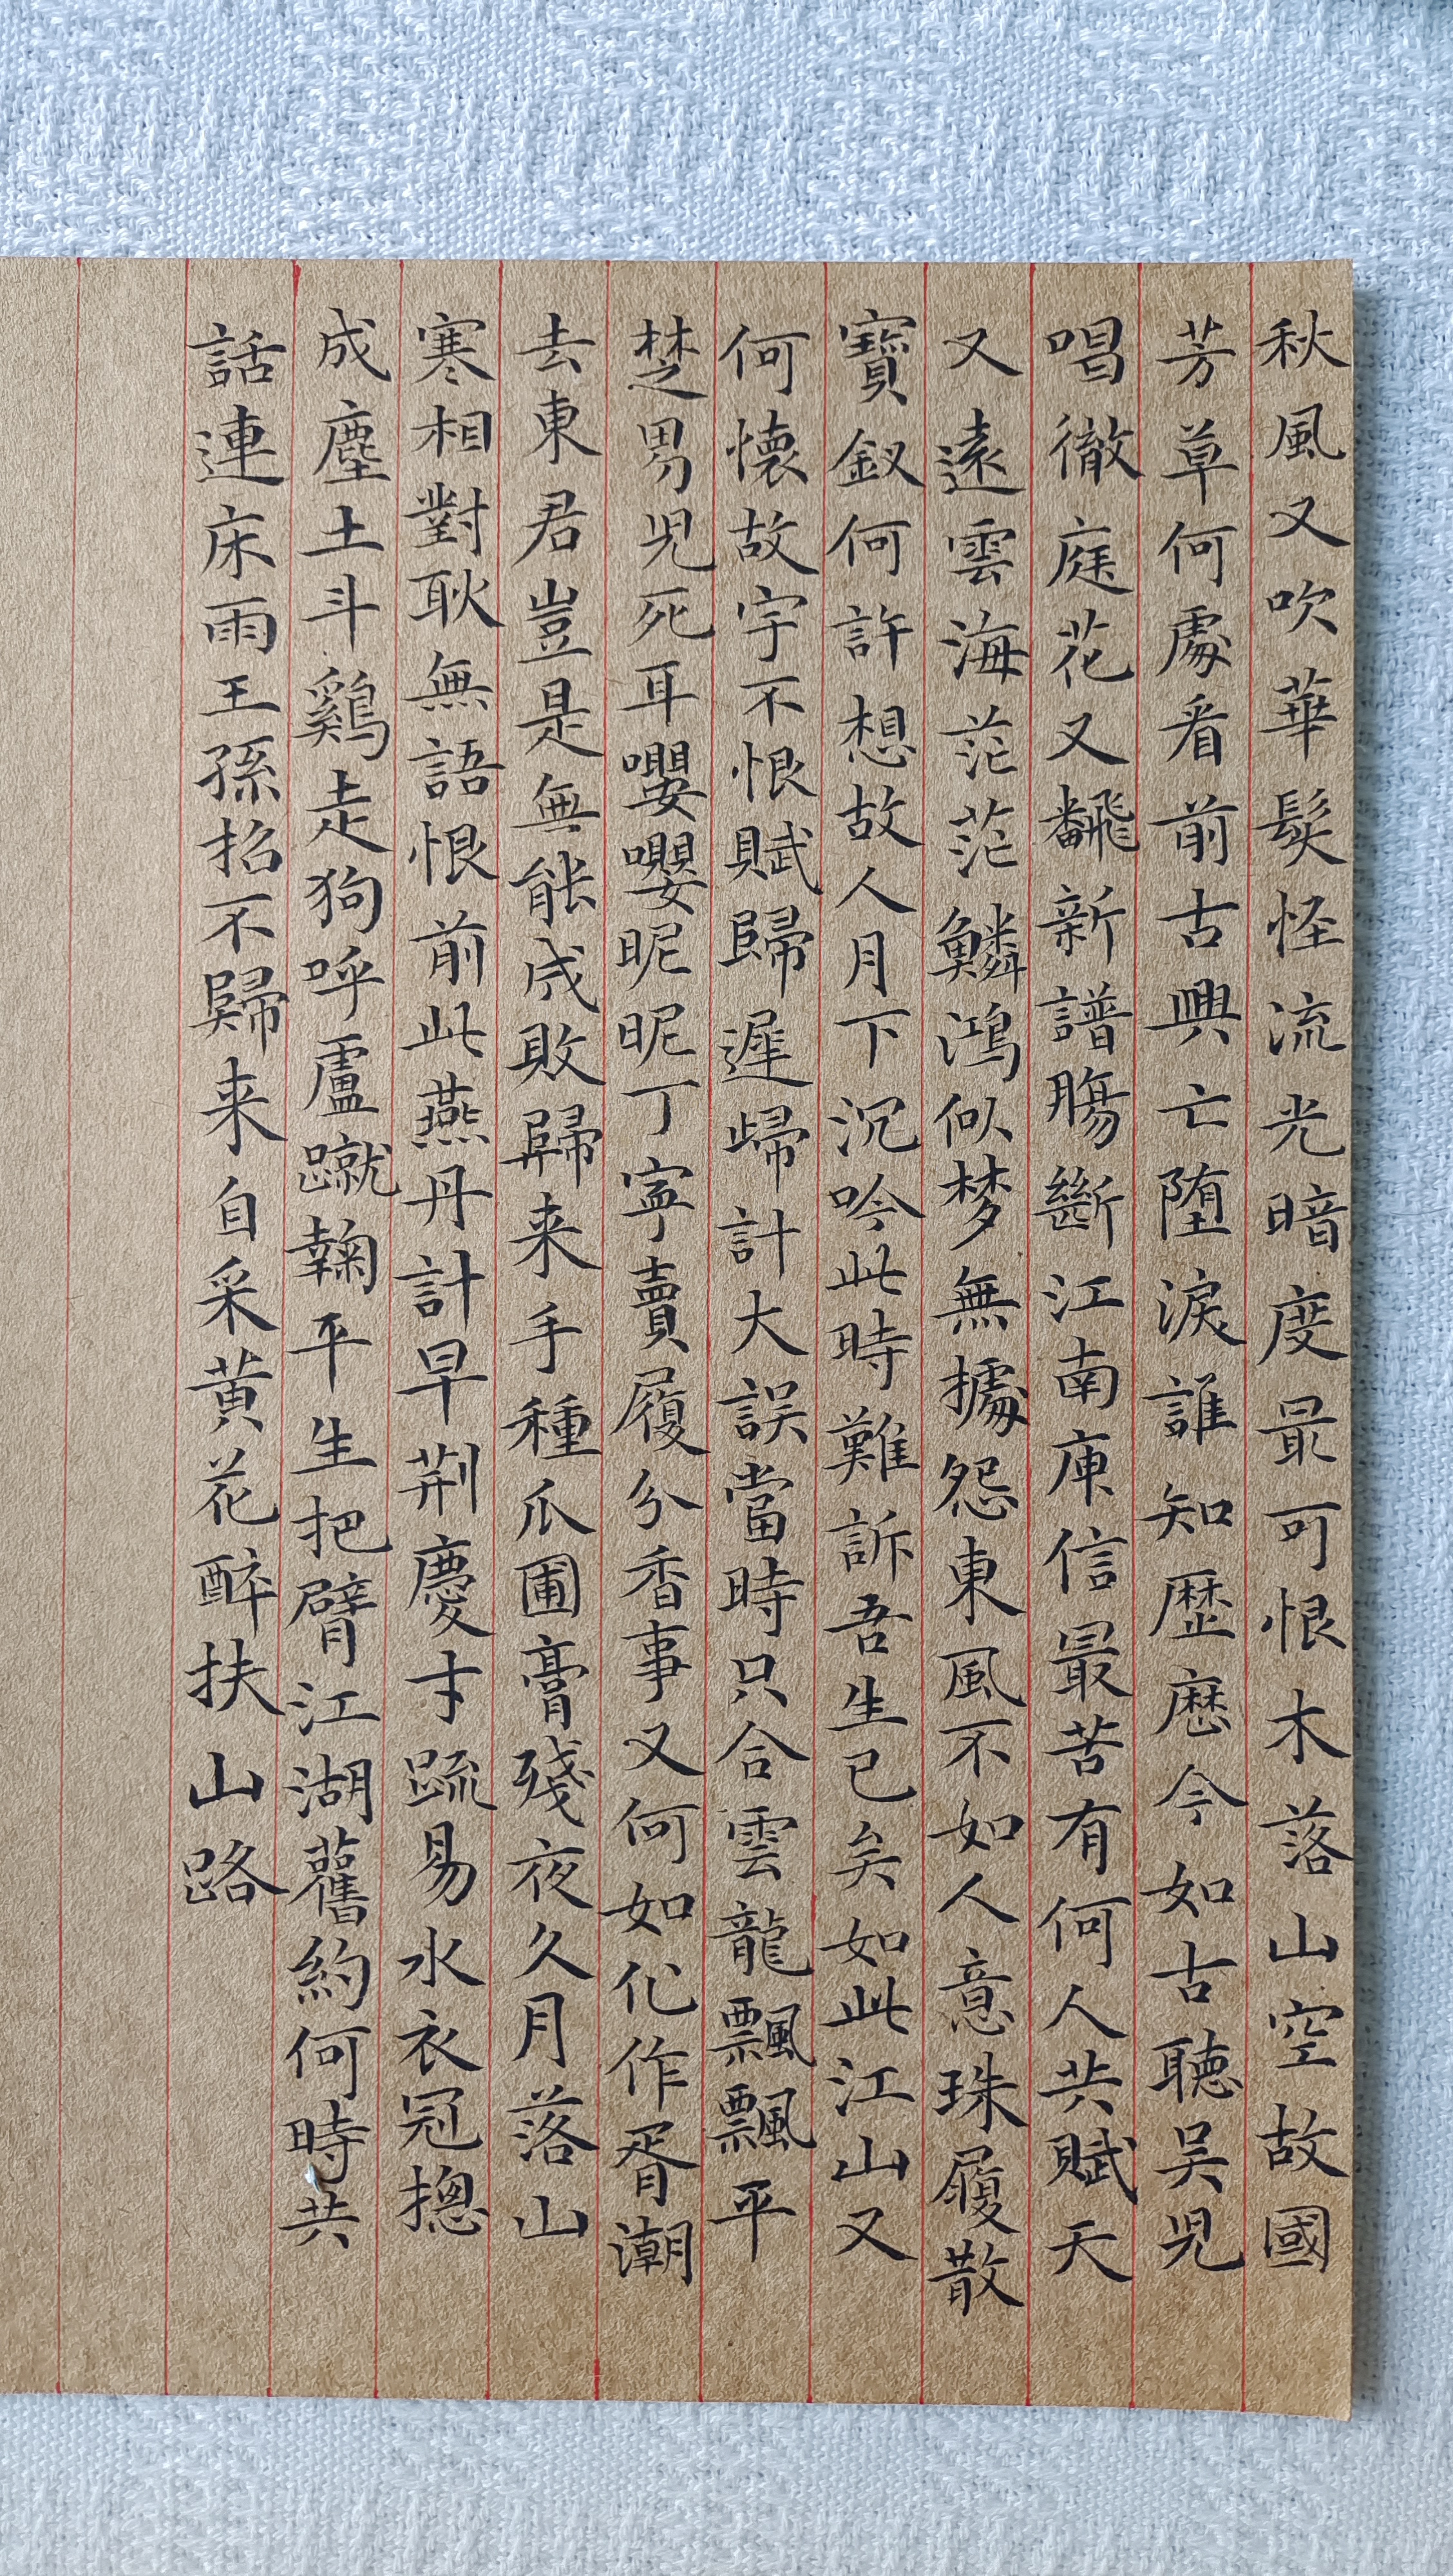 秋風又吹華髮怪流光暗度最可恨木落山空故國
芳草何處看前古興亡墮淚誰知歷歷今如古聽吳兒
唱徹庭花又飜新譜腸斷江南庾信最苦有何人共賦天
又遠雲海茫茫鱗鴻似梦無據怨東風不如人意珠履散
寶釵何許想故人月下沉吟此時難訴吾生已矣如此江山又
何懷故宇不恨賦歸遲歸計大誤當時只合雲龍飄飄平
楚男兒死耳嚶嚶昵昵丁寧賣履分香事又何如化作胥潮
去東君豈是無能成敗歸来手種瓜圃膏殘夜久月落山
寒相對耿無語恨前此燕丹計早荆慶才疏易水衣冠摠
成塵土斗鷄走狗呼盧蹴鞠平生把臂江湖舊約何時共
話連床雨王孫招不歸来自采黄花醉扶山路